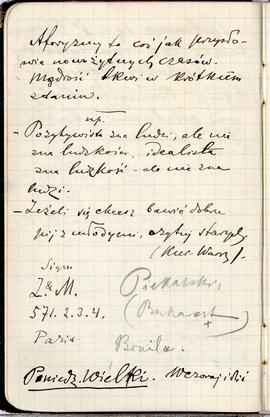 Aforyzmy to coś jak przysło-
wia nowożytnych czasów.
Mądrość tkwi w krótkiem
zdaniu.
np.
- Pozytywista zna ludzi, ale nie
zna ludzkości, idealista
zna ludzkość - ale nie zna
ludzi.
- Jeżeli się chcesz bawić dobrze
pij z młodymi, czytaj starych
(Kur. Warsz).
Sign.
Z. M.
571. 2. 3. 4.
Paris
Piekarski,
(Bucharest)
+
Braila.
Poniedz. Wielki. Wczoraj i dziś